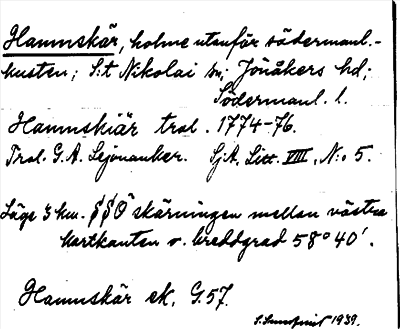 Hamnskär, holme utanför södermanl.-
kusten; S:t Nikolai sn; Jönåkers hd;
Södermanl. l.
Hamnskiär trol. 1774-76.
Trol. G.A. Lejonanker. SjA. Litt. VIII, N:o 5.
Läge 3 km. SSO skärningen mellan västra
kartkanten o. breddgrad 58° 40'.
Hamnskär ek. G.57.
1939.